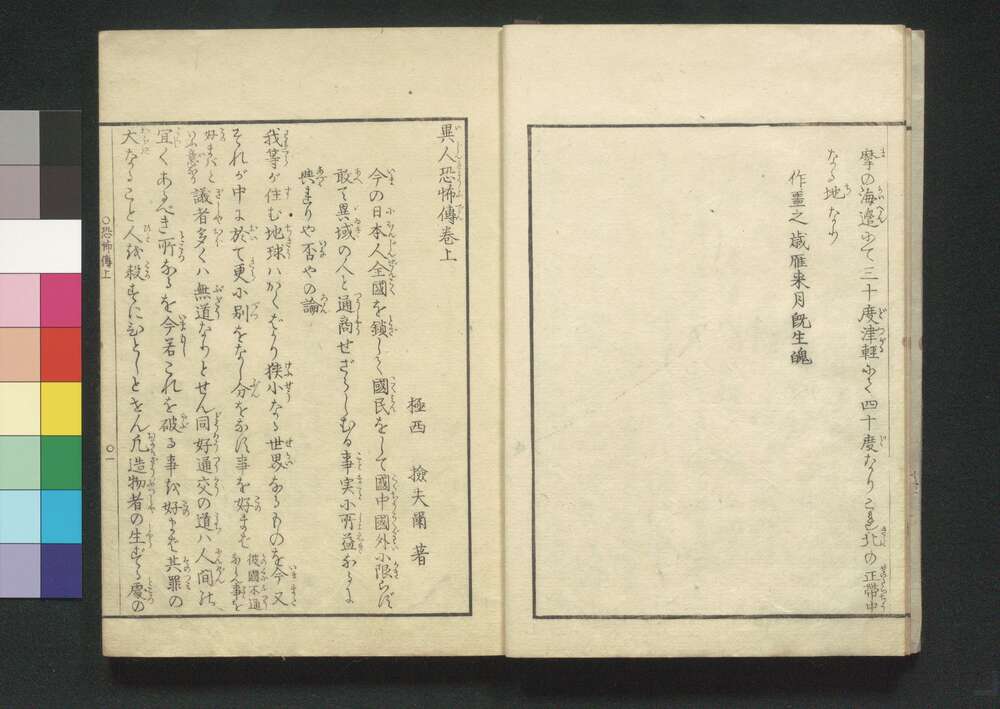 摩の海邉にて三十度津軽にて四十度なりこれ北の正帶中
なる地なり
作噩之歳雁来月既生魄
異人恐怖傳巻上
極西 撿夫爾 著
今の日本人全國を鎖して國民をして國中國外に限らず
敢て異域の人と通商せざらしむる事実に所益なるに
與れりや否やの論
我等が住む地球ハかくばかり狭小なる世界なるものを今又
それが中に於て更に別をなし分をなす事を好まバ
彼國不通
なる事を
好まバと
議者多くハ無道なりとせん同好通交の道ハ人间の
宜くあるべき所なるを今若これを破る事を好まバ其罪の
大なること人を殺すにひとしとせん凢造物者の生ずる處の
○恐怖傳上
○一